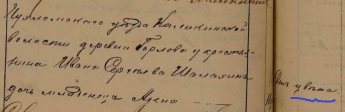 Чухломского уезда Каликинской
волости деревни Горлова у крестья-
нина Ивана Сергеева Шаматина
дочь младенец Мрена